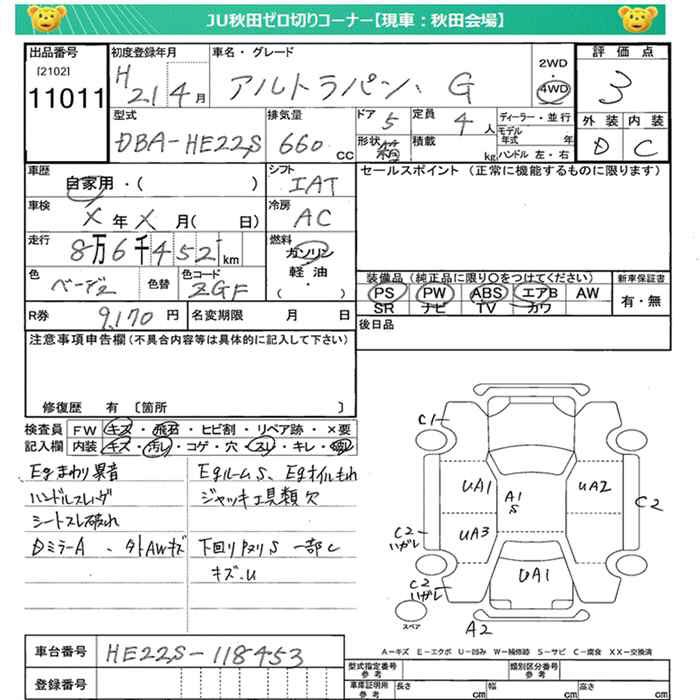 JU秋田ゼロ切りコーナー【現車：秋田会場】
出品番号
[2102]
11011
初度登録年月
H 21 4月
車名・グレード
アルトラパン、G
2WD
・
4WD
評価点
3
外装 内装
D C
型式
DBA-HE22S
排気量
660 cc
ドア
5
形状
箱
定員
4人
積載
kg
ディーラー・並行
モデル年式 年
ハンドル 左・右
車歴
自家用・( )
シフト
IAT
車検
X年X月( 日)
冷房
AC
走行
8万6千452 km
燃料
ガソリン
軽油
( ・ )
色
ベージュ
色替
色コード
ZGF
R券
9,170円
名変期限 月 日
セールスポイント (正常に機能するものに限ります)
装備品 (純正品に限り○をつけてください)
PS PW ABS エアB AW
SR ナビ TV カワ
新車保証書
有・無
後日品
注意事項申告欄(不具合内容等は具体的に記入して下さい)
修復歴 有 〔箇所 〕
検査員記入欄
FW キズ・飛石・ヒビ割・リペア跡・×要
内装 キズ・汚レ・コゲ・穴・スレ・キレ・
Egまわり異音
ハンドルスレ
シートスレ破れ
Dミラー A 、タトAWキズ
EgルームS、Egオイルもれ
ジャッキ工具類欠
下回りサビS 一部C
キズ・U
C1
UA1
A1
S
UA2
C2
UA3
C2
ハガレ
C2
ハガレ
UA1
A2
スペア
A－キズ E－エクボ U－凹み W－補修跡 S－サビ C－腐食 XX－交換済
車台番号
HE22S-118453
登録番号
型式指定番号
参考
類別区分番号
参考
車庫証明用
参考
長さ cm
幅 cm
高さ cm